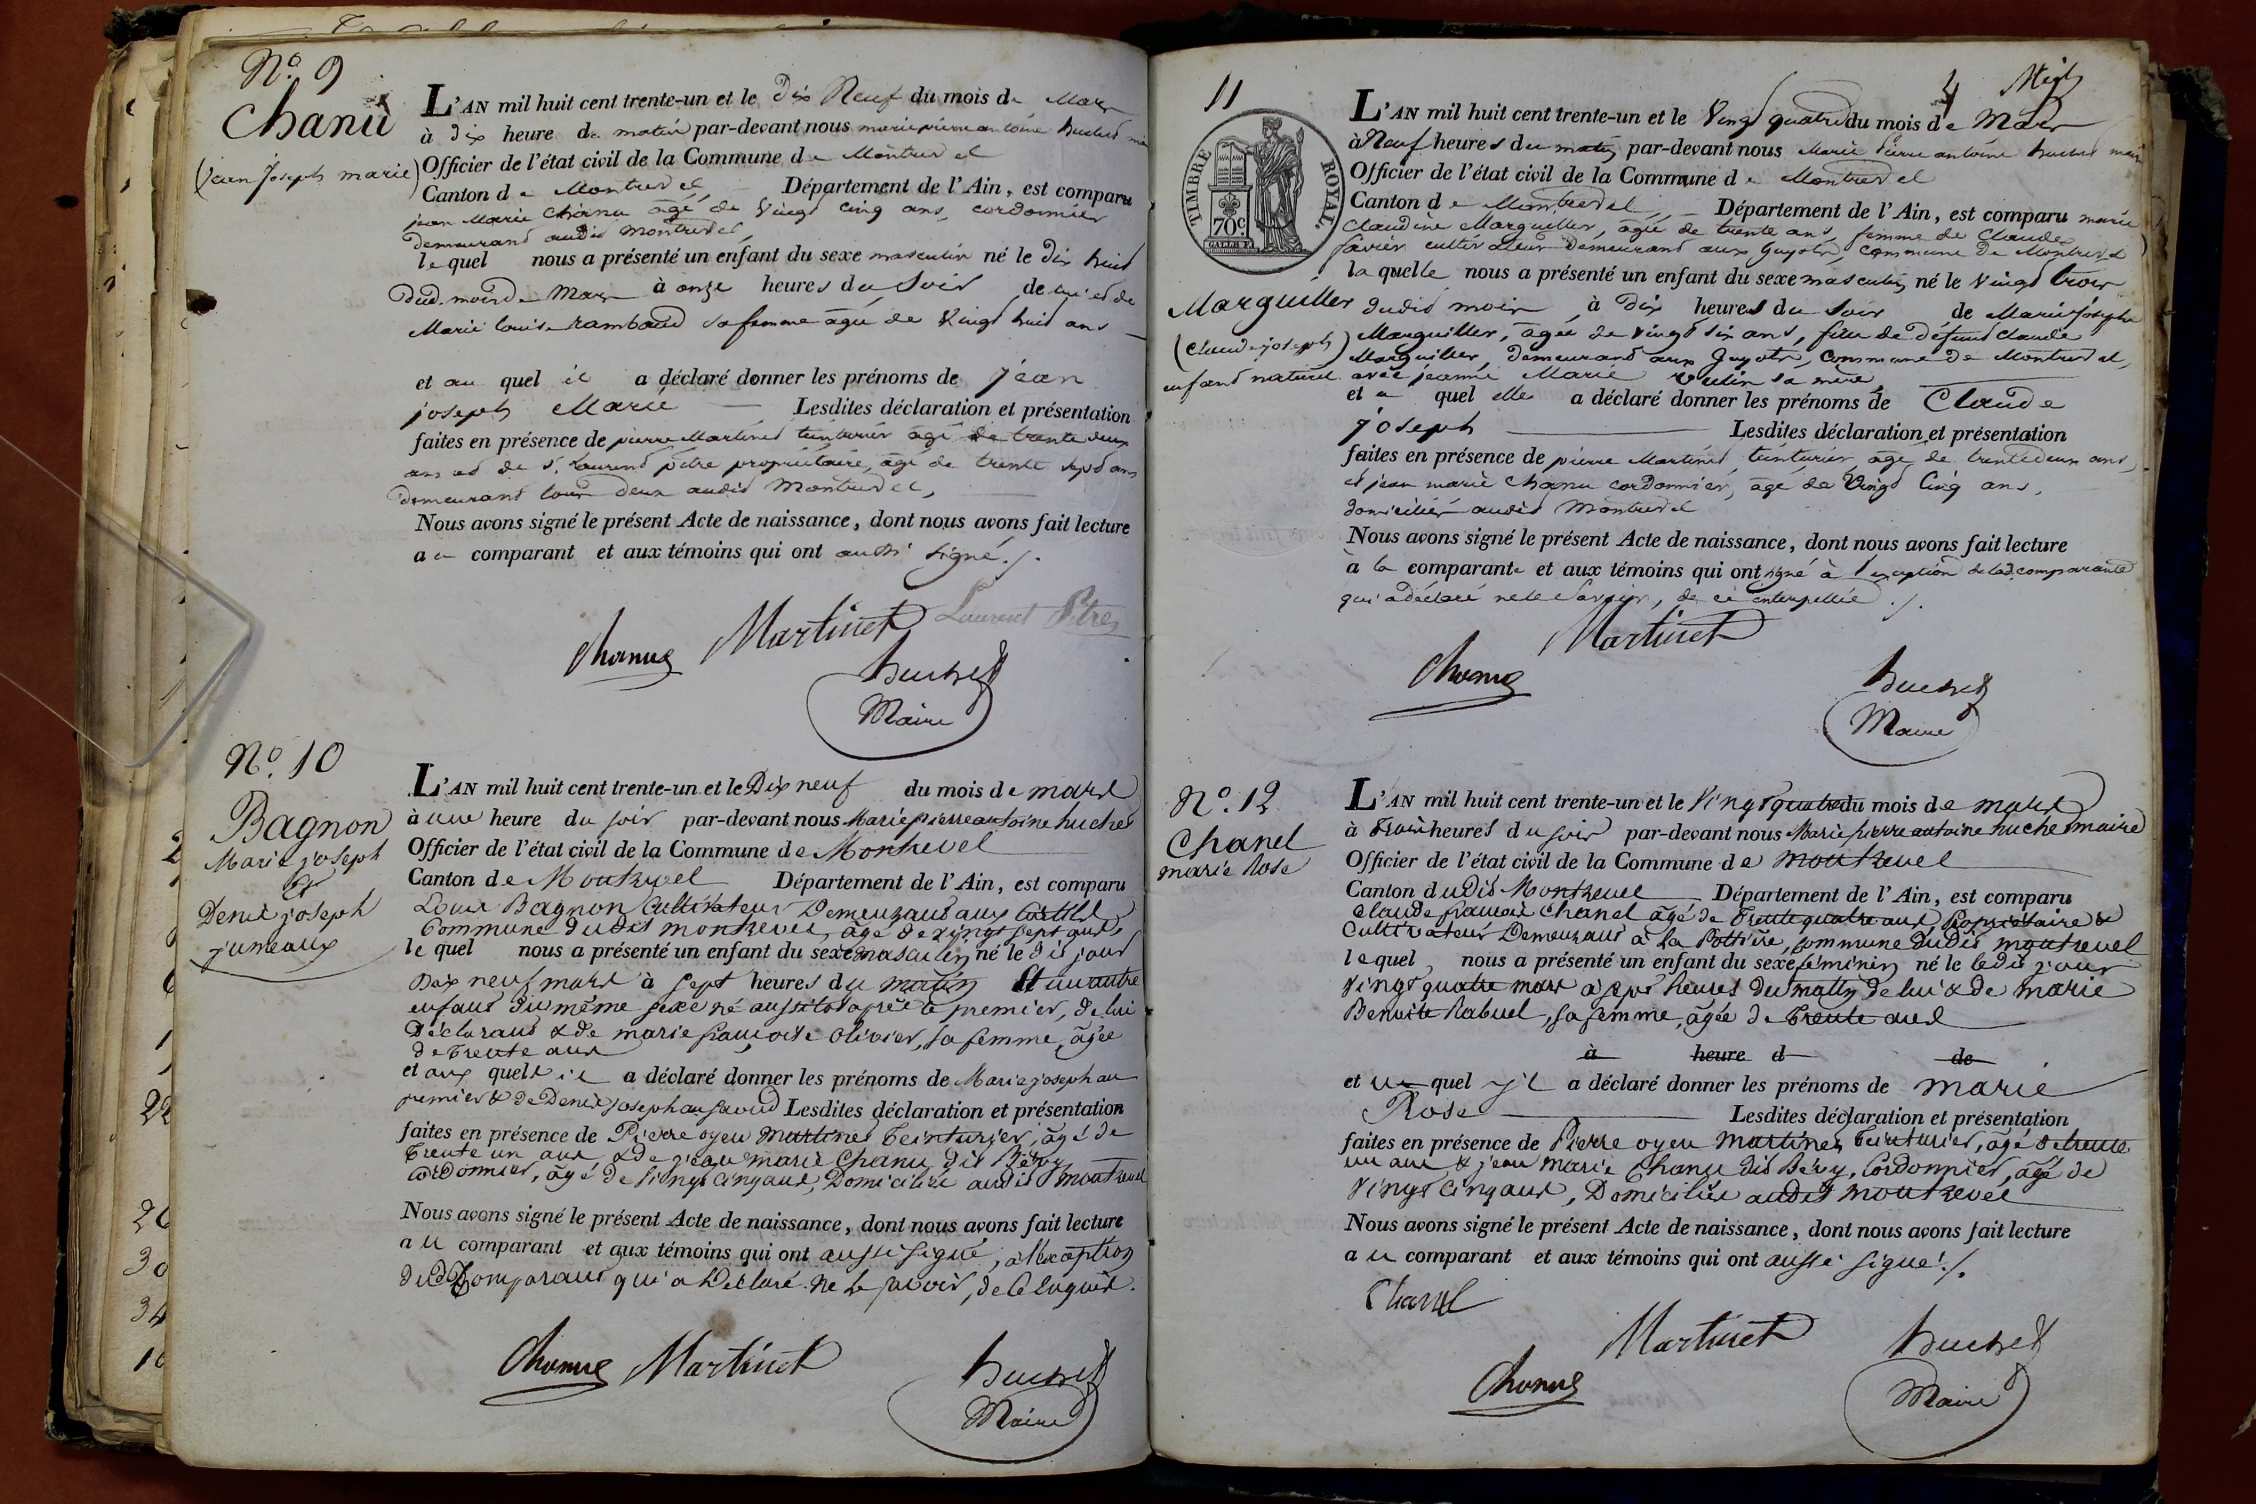 N.º 9
Chanu
(jean joseph marie)
L'AN mil huit cent trente-un et le Dix Neuf du mois de Mars
à dix heure de matin par-devant nous marie pierre antoine huchet
Officier de l'état civil de la Commune de Montrevel
Canton de Montrevel, Département de l'Ain, est comparu
jean Marie Chanu âgé de Vingt cinq ans, cordonnier
demeurant audit Montrevel,
lequel nous a présenté un enfant du sexe masculin né le dix huit
dud. mois de Mars à onze heures du Soir de lui et de
Marie louise rambaud sa femme âgée de Vingt huit ans
et au quel il a déclaré donner les prénoms de jean
joseph Marie Lesdites déclaration et présentation
faites en présence de pierre Martinet teinturier âgé de trente deux
ans et de s. Laurent pitre propriétaire, âgé de trente sept ans
demeurant tous deux audit Montrevel,
Nous avons signé le présent Acte de naissance, dont nous avons fait lecture
au comparant et aux témoins qui ont aussi signé ./.
Chanu Martinet Laurent Pitre
huchet
Maire
N.º 10
Bagnon
Marie joseph
&
Denis joseph
jumeaux
L'AN mil huit cent trente-un et le Dix neuf du mois de mars
à une heure du soir par-devant nous Marie pierre antoine huchet
Officier de l'état civil de la Commune de Montrevel
Canton de Montrevel Département de l'Ain, est comparu
Louis Bagnon Cultivateur Demeurant aux
Commune dudit montrevel, âgé de vingt sept ans
lequel nous a présenté un enfant du sexe masculin né le dit jour
Dix neuf mars à sept heures du matin Et un autre
enfant du même sexe né aussitot après le premier, de lui
Déclarant & de marie françoise olivier, sa femme, âgée
de Trente ans
et aux quels il a déclaré donner les prénoms de Marie joseph au
premier & de Denis joseph au second Lesdites déclaration et présentation
faites en présence de Pierre oyen Martinet Teinturier, âgé de
Trente un ans & de jean marie Chanu dit Bévy
cordonnier, âgé de Vingt Cinq ans, Domiciliés audit montrevel
Nous avons signé le présent Acte de naissance, dont nous avons fait lecture
au comparant et aux témoins qui ont aussi signé, à l'exception
dud. Comparant qui a Déclaré ne le savoir, de ce enquis.
Chanu Martinet huchet
Maire
11
4
TIMBRE ROYAL
70c.
Marguiller
(claude joseph)
enfant naturel
L'AN mil huit cent trente-un et le Vingt quatre du mois de Mars
à Neuf heures du matin par-devant nous Marie Pierre antoine huchet maire
Officier de l'état civil de la Commune de Montrevel
Canton de Montrevel Département de l'Ain, est comparu marie
Claudine Marguiller, âgée de trente ans, femme de Claude
favier cultivateur demeurant aux Guyots, commune de Montrevel
laquelle nous a présenté un enfant du sexe masculin né le Vingt trois
dudit mois à Dix heures du Soir de Marie josephe
Marguiller, âgée de vingt six ans, fille de défunt Claude
Marguiller, demeurant aux Guyots, Commune de Montrevel,
avec jeanne Marie sa mère,
et au quel elle a déclaré donner les prénoms de Claude
joseph Lesdites déclaration et présentation
faites en présence de pierre Martinet, teinturier, âgé de trente deux ans,
et jean marie Chanu cordonnier, âgé de Vingt Cinq ans,
domiciliés audit Montrevel
Nous avons signé le présent Acte de naissance, dont nous avons fait lecture
à la comparante et aux témoins qui ont signé à l'exception de lad. comparante
qui a déclaré ne le Savoir, de ce interpellée ./.
Martinet
Chanu
huchet
Maire
N.º 12
Chanel
marie Rose
L'AN mil huit cent trente-un et le Vingt quatre du mois de mars
à Trois heures du soir par-devant nous Marie pierre antoine huchet maire
Officier de l'état civil de la Commune de montrevel
Canton dudit Montrevel Département de l'Ain, est comparu
Claude françois Chanel âgé de Trente quatre ans, Propriétaire &
Cultivateur Demeurant à la Pottière, commune dudit montrevel
lequel nous a présenté un enfant du sexe féminin né le ledit jour
Vingt quatre mars à sept heures du matin de lui & de marie
Benoite Rabuel, sa femme, âgée de Trente ans
à heure d de
et au quel il a déclaré donner les prénoms de marie
Rose Lesdites déclaration et présentation
faites en présence de Pierre oyen Martinet, Teinturier, âgé de trente
un ans & jean Marie Chanu dit Bévy, Cordonnier, âgé de
Vingt Cinq ans, Domiciliés audit montrevel
Nous avons signé le présent Acte de naissance, dont nous avons fait lecture
au comparant et aux témoins qui ont aussi signé ./.
Chanel
Martinet huchet
Chanu Maire